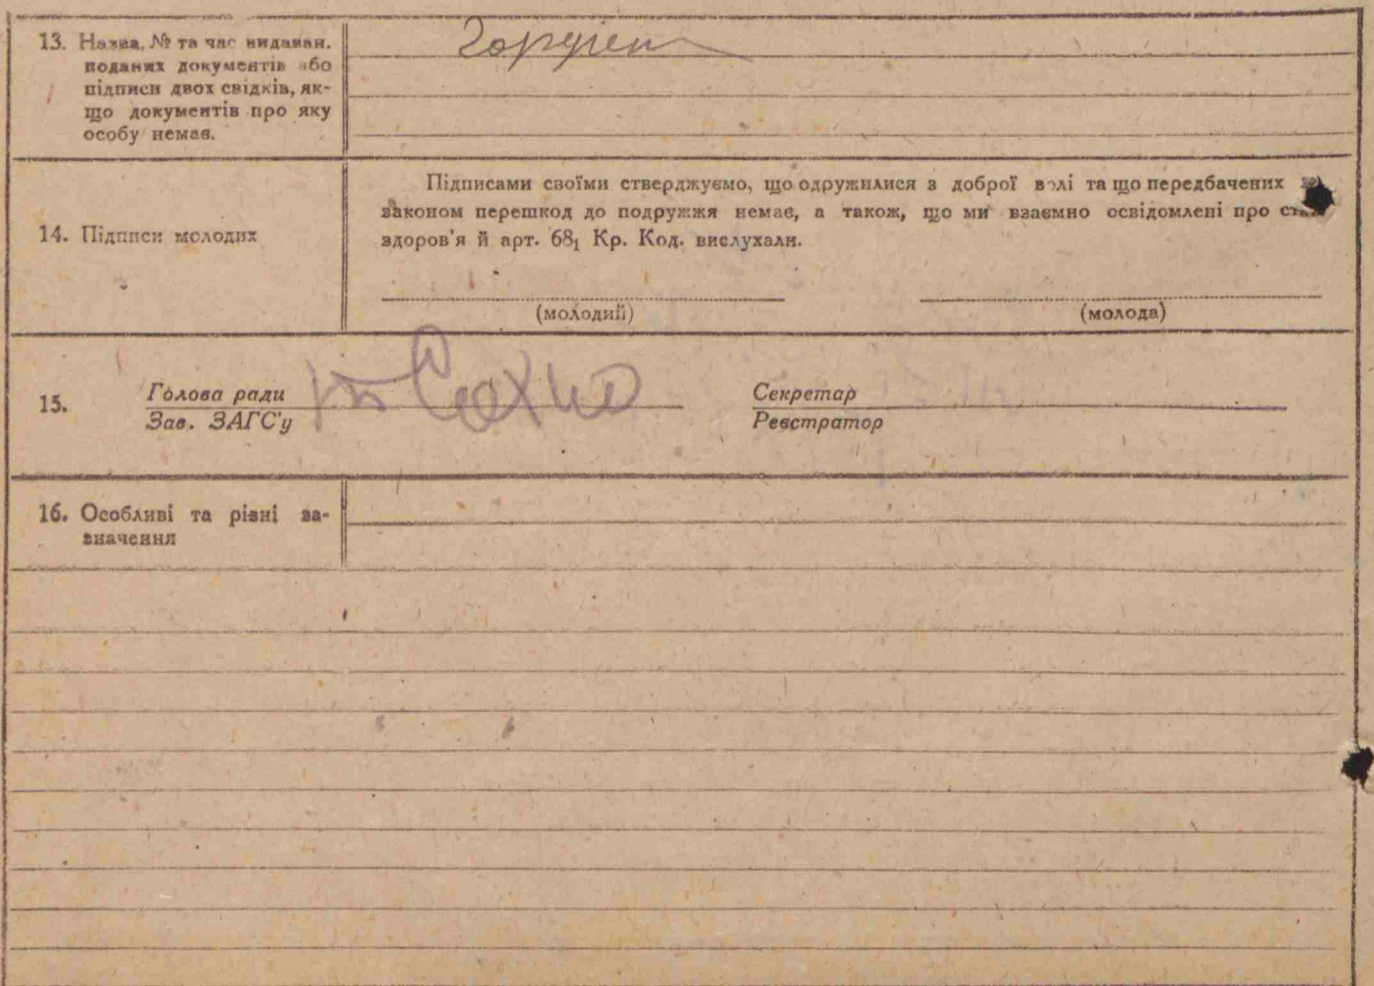 13. Назва, № та час видаван.
поданих документів або
підписи двох свідків, як-
що документів про яку
особу немає.
14. Підписи молодих
Підписами своїми стверджуємо, що одружилися з доброї волі та що передбачених
законом перешкод до подружжя немає, а також, що ми взаємно освідомлені про стан
здоров'я й арт. 68₁ Кр. Код. вислухали.
(молодий) (молода)
15. Голова ради Сахно Секретар
Зав. ЗАГС'у Реєстратор
16. Особливі та різні за-
значення